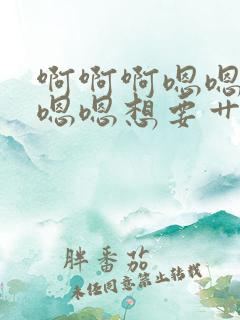 啊啊啊嗯嗯
嗯嗯想要艹
胖番茄
未经同意禁止转载